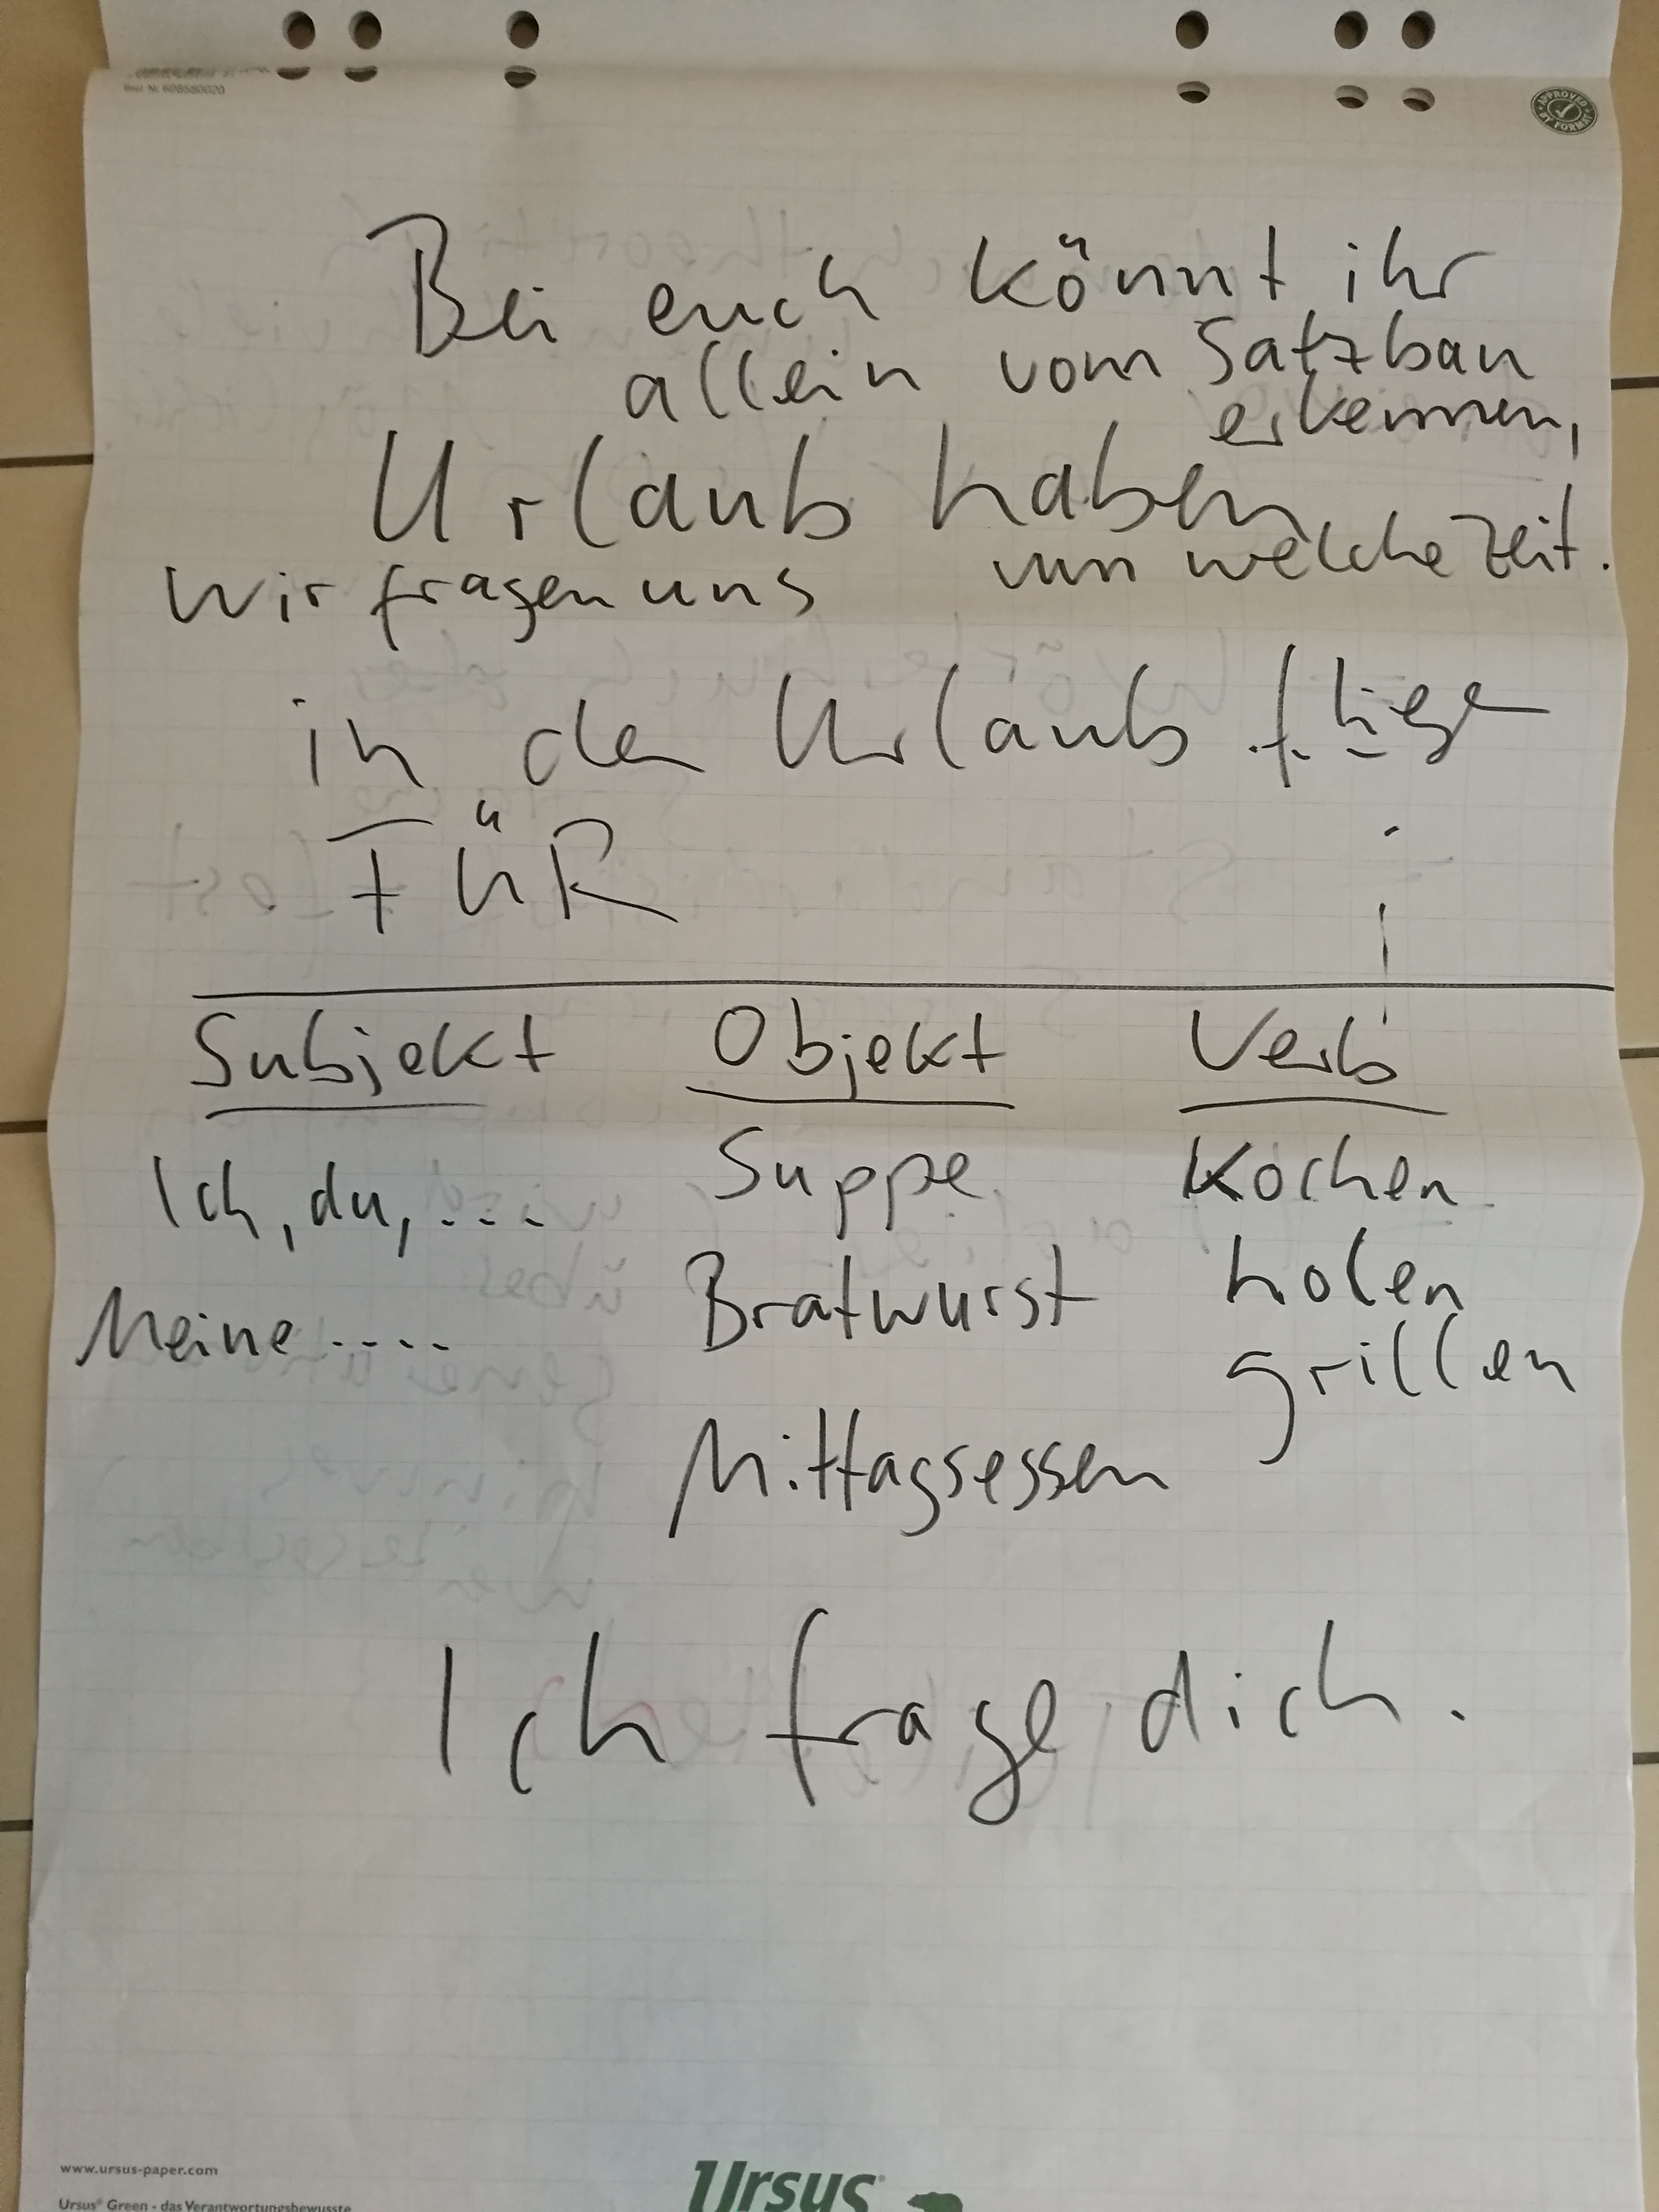 Best. Nr. 608580020
APPROVED
BY FORMAT
Bei euch könnt ihr
allein vom Satzbau
erkennen,
Urlaub haben
um welche Zeit.
wir fragen uns
in den Urlaub fliegen
FÜR
Subjekt Objekt Verb
Ich, du, ... Suppe Kochen
Meine .... Bratwurst holen
grillen
Mittagsessen
Ich frage dich.
www.ursus-paper.com
Ursus® Green - das Verantwortungsbewusste
Ursus®